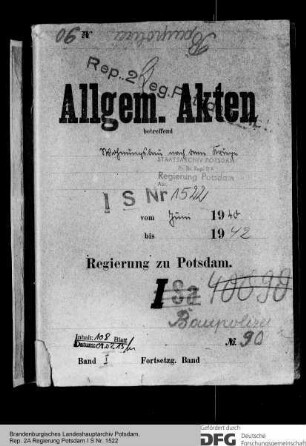 No 90 Baupolizei
Rep. 2 Reg. Potsdam
Allgem. Akten
betreffend
Wohnungsbau nach dem Kriege
STAATSARCHIV POTSDAM
Regierung Potsdam
I S Nr 1522
vom Juni 1940
bis 1942
Regierung zu Potsdam.
I Sa 40090
Baupolizei
No. 90
Inhalt: 108 Blatt
Band I Fortsetzg. Band
Brandenburgisches Landeshauptarchiv Potsdam,
Rep. 2A Regierung Potsdam I S Nr. 1522
Gefördert durch
DFG Deutsche
Forschungsgemeinschaft